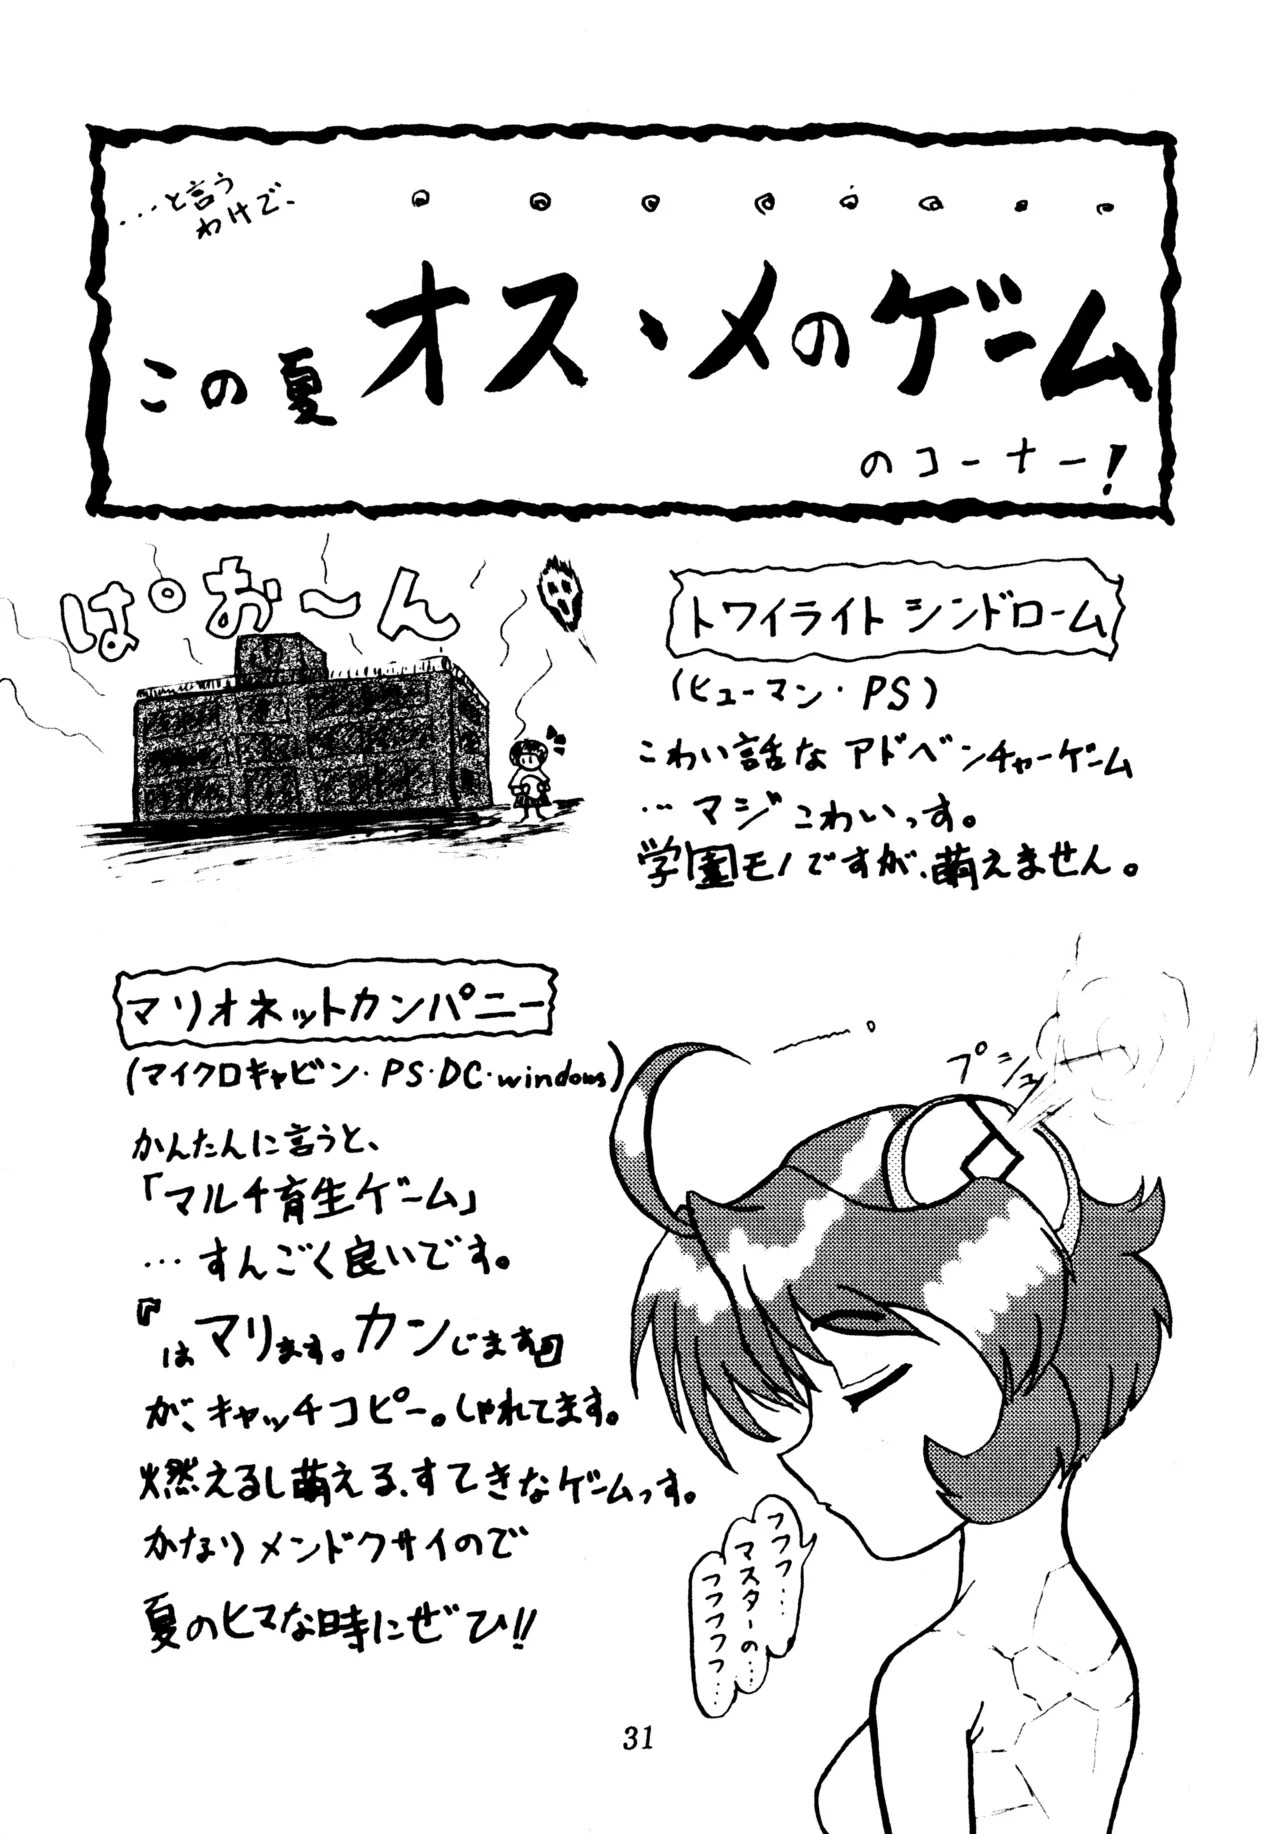 …と言う
わけで、
この夏 オスヽメのゲーム
のコーナー!
ぱお〜ん
トワイライトシンドローム
(ヒューマン・PS)
こわい話なアドベンチャーゲーム
…マジこわいっす。
学園モノですが、萌えません。
マリオネットカンパニー
(マイクロキャビン・PS・DC・windows)
かんたんに言うと、
「マルチ育生ゲーム」
…すんごく良いです。
『はマリます。カンじます』
が、キャッチコピー。しゃれてます。
燃えるし萌える、すてきなゲームっす。
かなりメンドクサイので
夏のヒマな時にぜひ!!
プシュ
フフフ…
マスターの…
フフフフフ…
31